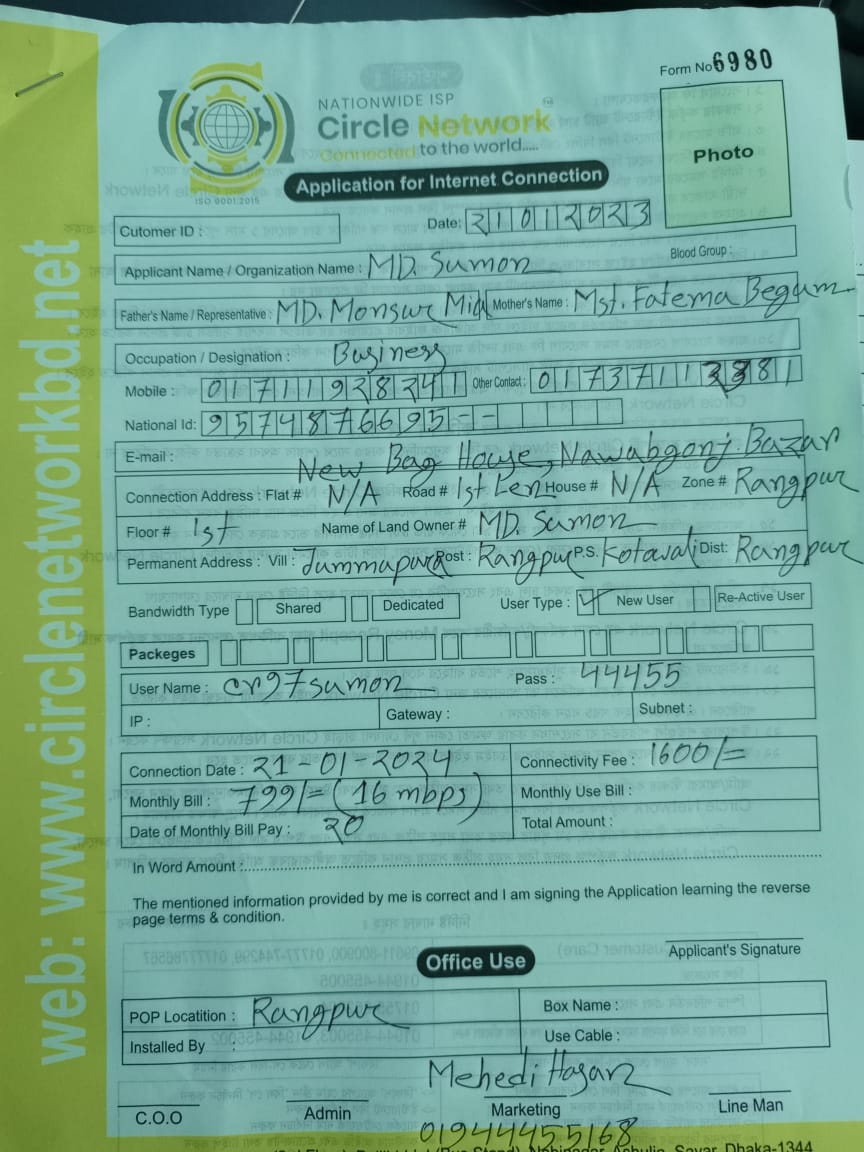 Form No 6980
NATIONWIDE ISP
Circle Network
Connected to the world.....
ISO 9001:2015
Application for Internet Connection
Photo
Cutomer ID :
Date: 21012023
Applicant Name / Organization Name : MD. Sumon
Blood Group :
Father's Name / Representative : MD. Monsur Mia Mother's Name : Mst. Fatema Begum
Occupation / Designation : Business
Mobile : 01711928241 Other Contact : 0173711381
National Id: 9574876695--
E-mail :
New Bag House, Nawabgonj Bazar
Connection Address : Flat # N/A Road # 1st Len House # N/A Zone # Rangpur
Floor # 1st Name of Land Owner # MD. Sumon
Permanent Address : Vill : Jummapara Post : Rangpur P.S. Kotowali Dist: Rangpur
Bandwidth Type Shared Dedicated User Type : New User Re-Active User
Packeges
User Name : cr97sumon Pass : 44455
IP : Gateway : Subnet :
Connection Date : 21-01-2024 Connectivity Fee : 1600/=
Monthly Bill : 799/= (16 mbps) Monthly Use Bill :
Date of Monthly Bill Pay : 20 Total Amount :
In Word Amount :
The mentioned information provided by me is correct and I am signing the Application learning the reverse
page terms & condition.
Applicant's Signature
Office Use
POP Locatition : Rangpur Box Name :
Installed By : Use Cable :
Mehedi Hasan
C.O.O Admin Marketing Line Man
01944455168
Dhaka-1344
web: www.circlenetworkbd.net